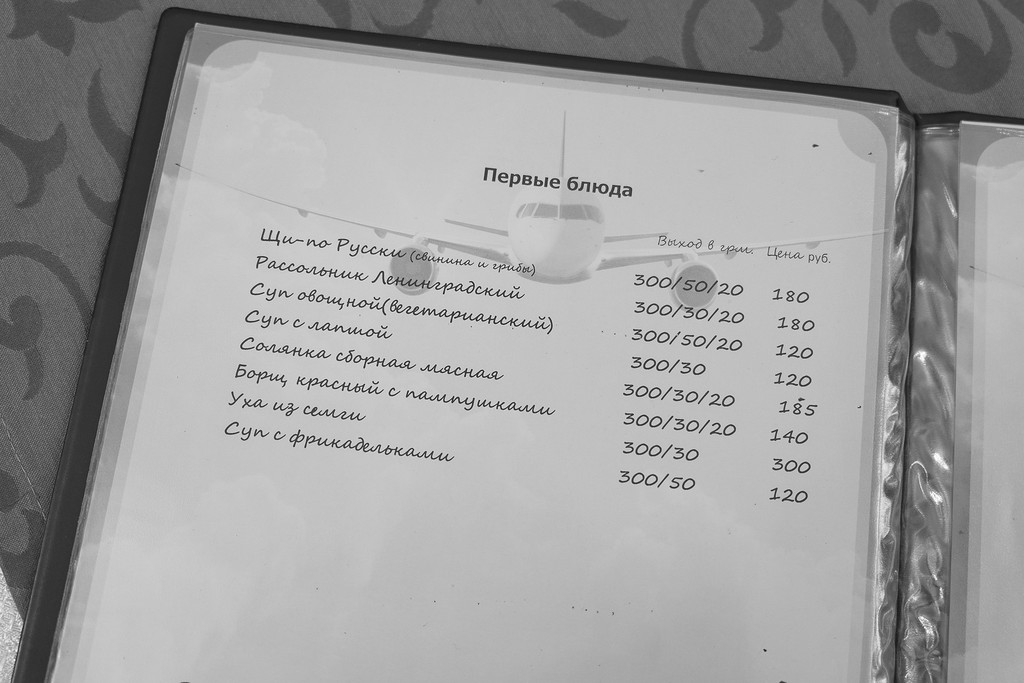 Первые блюда
Выход в грм. Цена руб.
Щи-по Русски (свинина и грибы) 300/50/20 180
Рассольник Ленинградский 300/30/20 180
Суп овощной(вегетарианский) 300/50/20 120
Суп с лапшой 300/30 120
Солянка сборная мясная 300/30/20 185
Борщ красный с пампушками 300/30/20 140
Уха из семги 300/30 300
Суп с фрикадельками 300/50 120